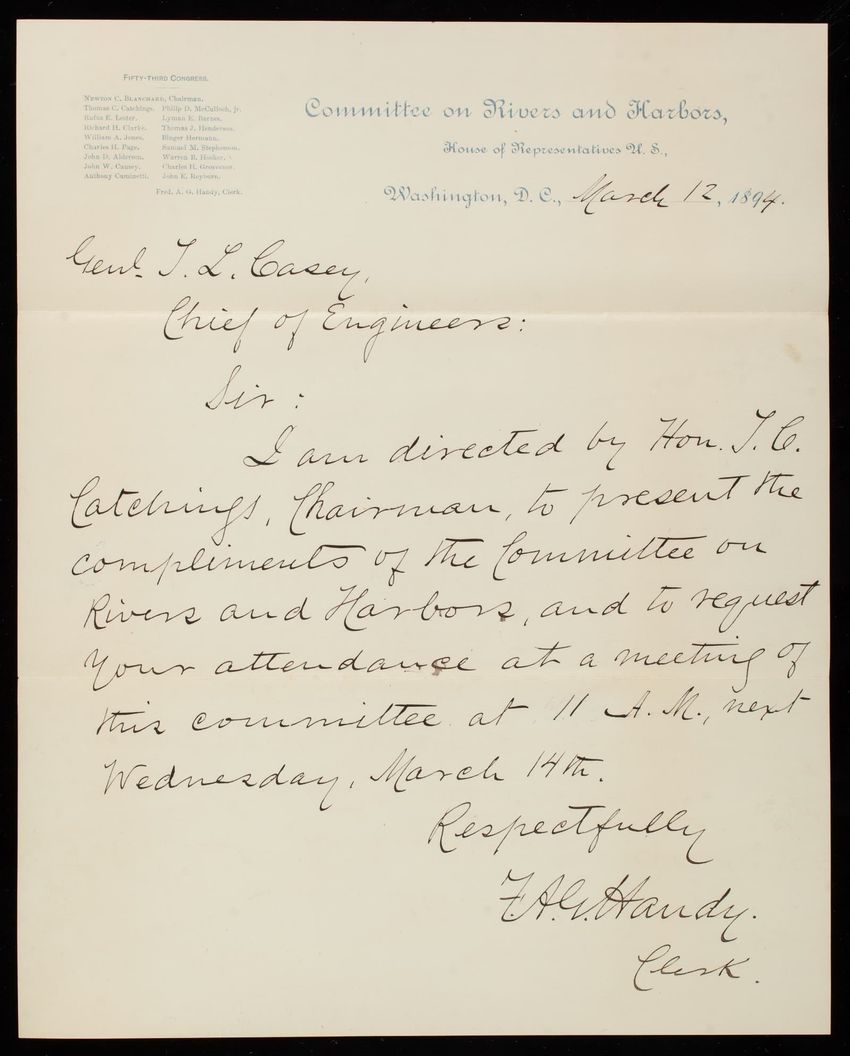 FIFTY-THIRD CONGRESS.
NEWTON C. BLANCHARD, Chairman.
Thomas C. Catchings. Philip D. McCulloch, jr.
Rufus E. Lester. Lyman E. Barnes.
Richard H. Clarke. Thomas J. Henderson.
William A. Jones. Binger Hermann.
Charles H. Page. Samuel M. Stephenson.
John D. Alderson. Warren B. Hooker.
John W. Causey. Charles H. Grosvenor.
Anthony Caminetti. John E. Reyburn.
Fred. A. G. Handy, Clerk.
Committee on Rivers and Harbors,
House of Representatives U. S.,
Washington, D. C., March 12, 1894.
Genl. T. L. Casey,
Chief of Engineers:
Sir:
I am directed by Hon. T. C.
Catchings, Chairman, to present the
compliments of the Committee on
Rivers and Harbors, and to request
your attendance at a meeting of
this committee at 11 A.M., next
Wednesday, March 14th.
Respectfully
F.A.G. Handy.
Clerk.